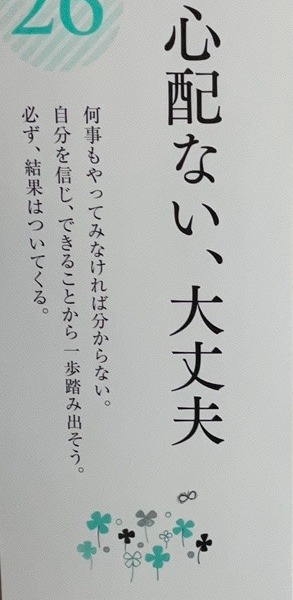 26
心配ない、大丈夫
何事もやってみなければ分からない。
自分を信じ、できることから一歩踏み出そう。
必ず、結果はついてくる。